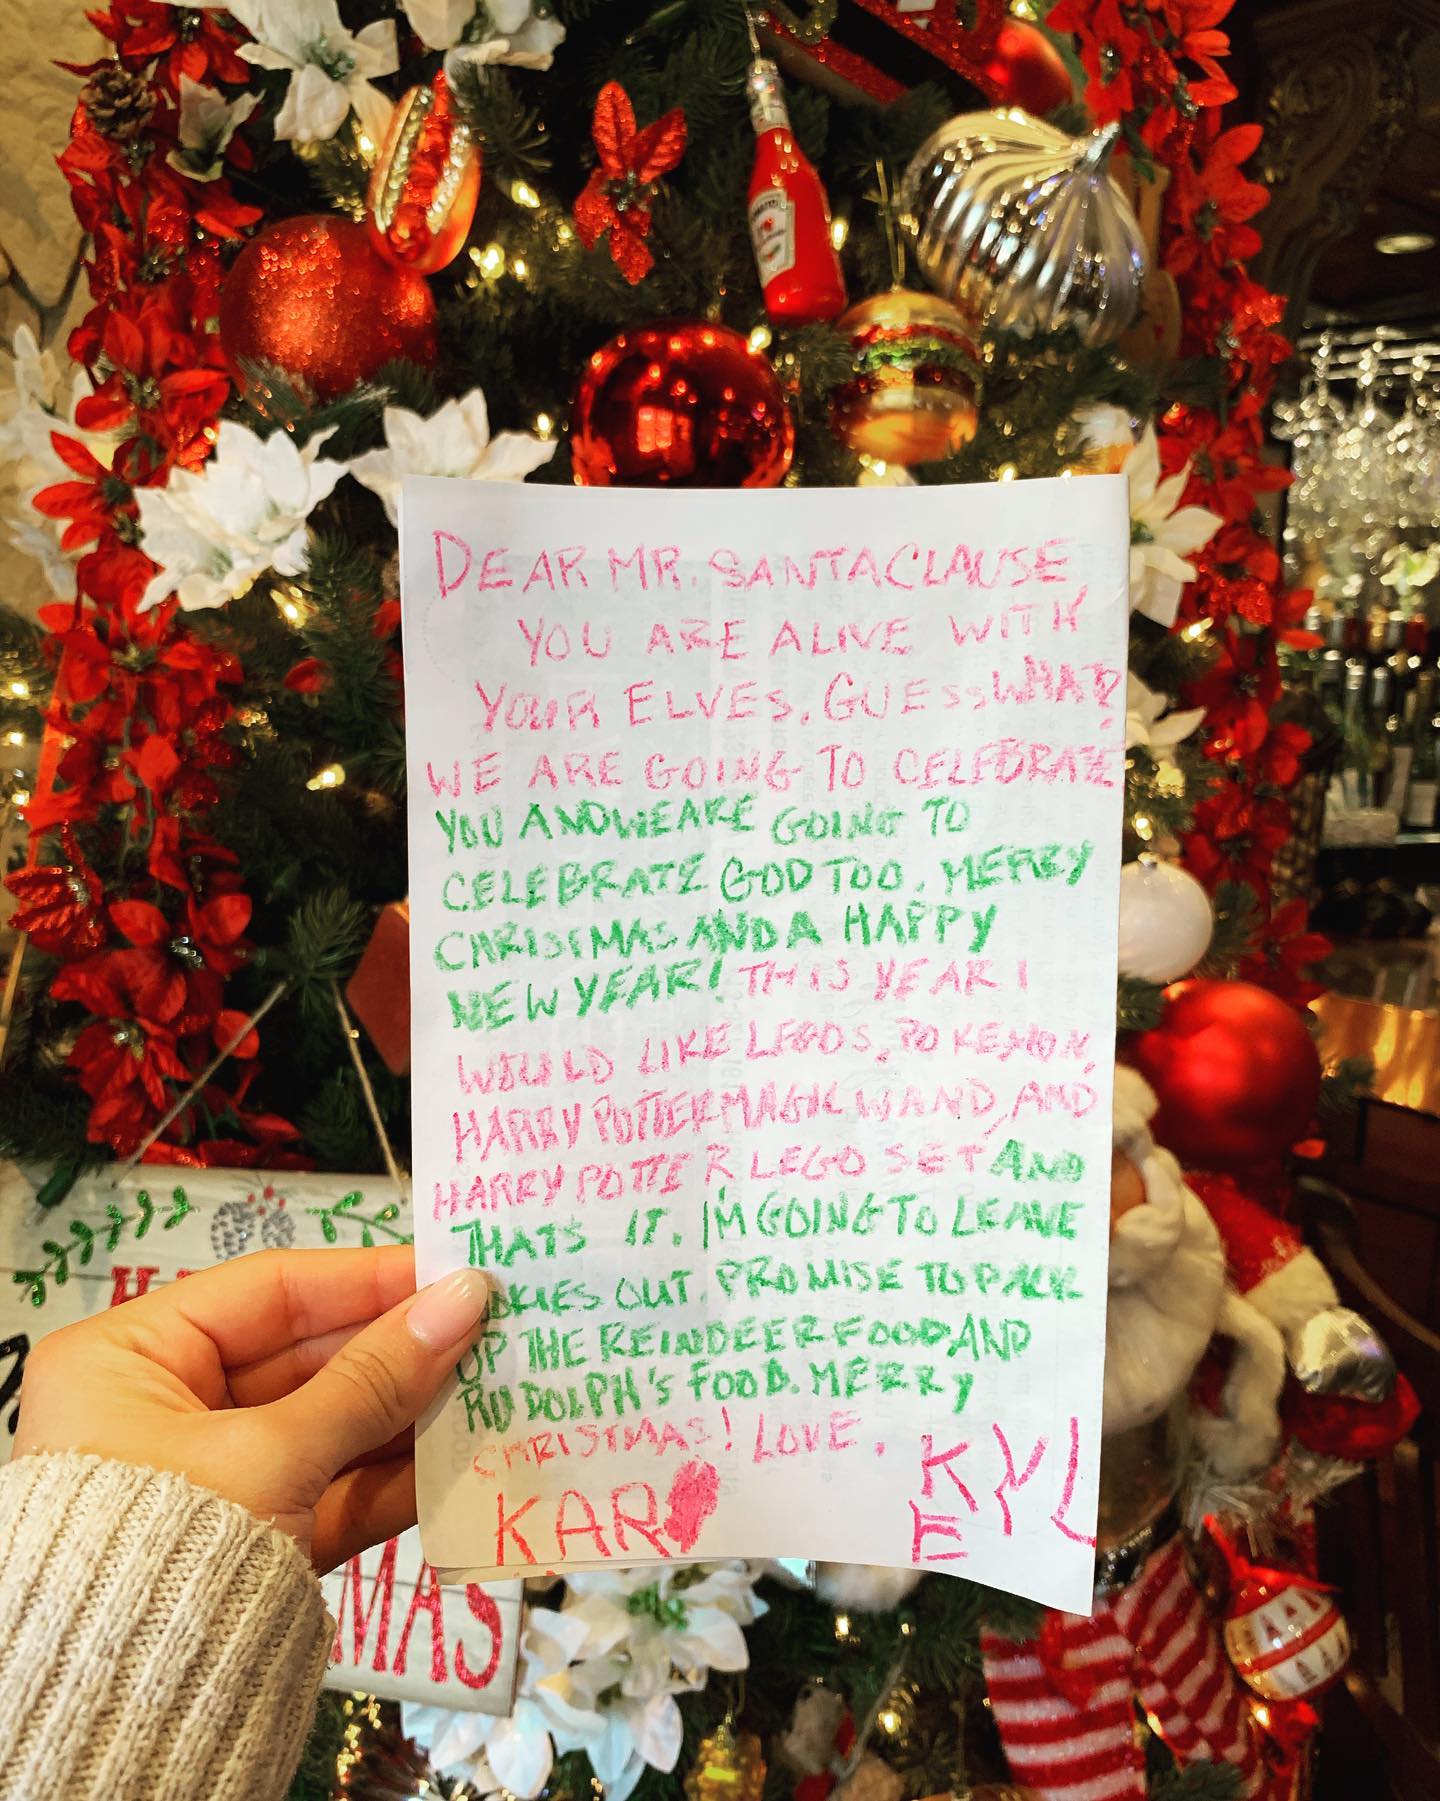 DEAR MR. SANTACLAUSE,
YOU ARE ALIVE WITH
YOUR ELVES. GUESS WHAT?
WE ARE GOING TO CELEBRATE
YOU AND WE ARE GOING TO
CELEBRATE GOD TOO. MERRY
CHRISTMAS AND A HAPPY
NEW YEAR! THIS YEAR I
WOULD LIKE LEGOS, POKEMON,
HARRY POTTER MAGIC WAND, AND
HARRY POTTER LEGO SET AND
THATS IT. I'M GOING TO LEAVE
OKIES OUT. PROMISE TO PACK
UP THE REINDEER FOOD AND
RUDOLPH'S FOOD. MERRY
CHRISTMAS! LOVE,
KAR
KYL
E
MAS